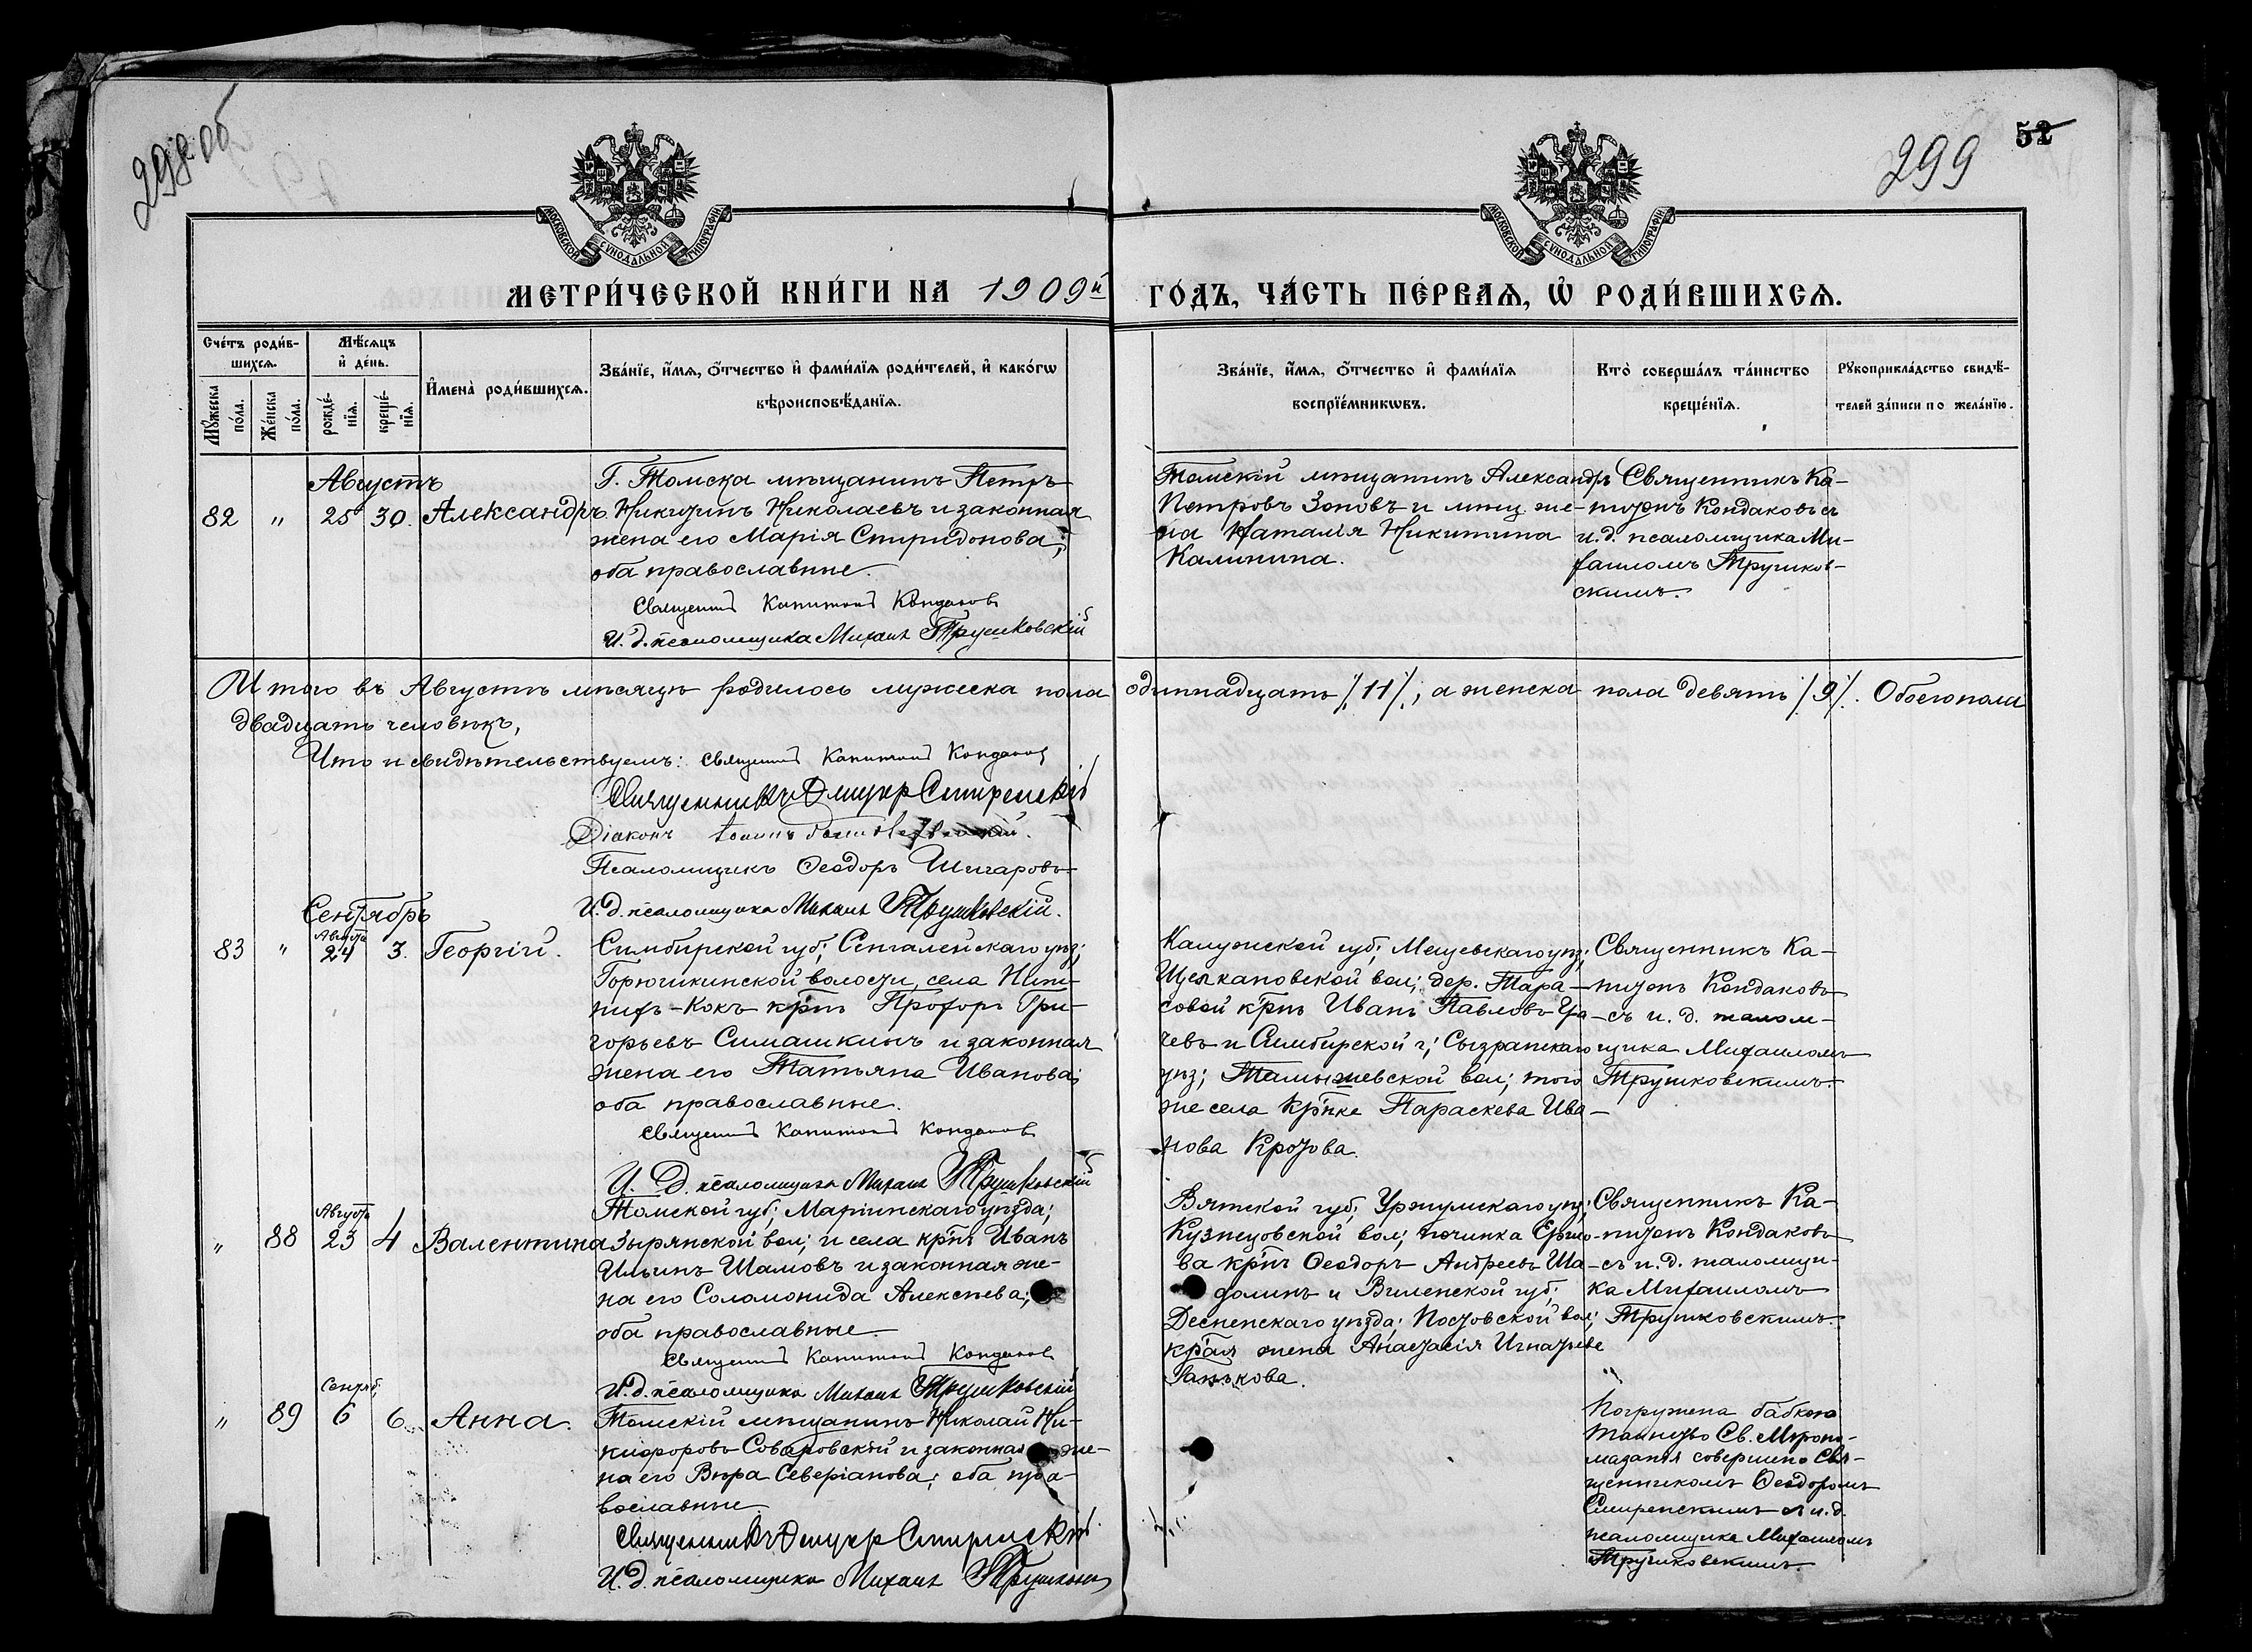 298 об
299
52
МОСКОВСКОЙ СѴНОДАЛЬНОЙ ТИПОГРАФІИ
МОСКОВСКОЙ СѴНОДАЛЬНОЙ ТИПОГРАФІИ
МЕТРИ́ЧЕСКОЙ КНИ́ГИ НА 1909й
ГО́ДЪ, ЧА́СТЬ ПЕ́РВАѦ, Ѡ҆ РОДИ́ВШИХСѦ.
Сче́тъ роди́в-
шихсѧ.
Мѣ́сѧцъ
и҆ де́нь.
Мꙋ́жеска
по́ла.
Же́нска
по́ла.
рожде́-
нїѧ.
креще́-
нїѧ.
И҆мена̀ роди́вшихсѧ.
Зва́нїе, и҆́мѧ, ѻ҆́тчество и҆ фами́лїѧ роди́телей, и҆ како́гѡ
вѣроисповѣ́данїѧ.
Зва́нїе, и҆́мѧ, ѻ҆́тчество и҆ фами́лїѧ
воспрїе́мникѡвъ.
Кто̀ соверша́лъ та́инство
креще́нїѧ.
Рꙋкоприкла́дство свидѣ́-
телей за́писи по жела́нїю.
Августъ
82 " 25 30. Александръ.
Г. Томска мѣщанинъ Петръ
Никитинъ Николаевъ и законная
жена его Марія Спиридонова;
оба православные.
Священникъ Капитонъ Кондаковъ
И. д. псаломщика Михаил Трушковскій
Томскій мѣщанинъ Александръ
Петровъ Зоновъ и мѣщ. же-
на Наталія Никитина
Калинина.
Священникъ Ка-
питонъ Кондаковъ съ
и. д. псаломщика Ми-
хаиломъ Трушков-
скимъ.
Итого въ Августѣ мѣсяцѣ родилось мужеска пола одиннадцать /11/; а женска пола девять /9/. Обоего пола
двадцать человѣкъ,
Что и свидѣтельствуемъ: Священникъ Капитонъ Кондаковъ
Священникъ Смиренскій
Діаконъ Іоаннъ
Псаломщикъ Ѳеодоръ Шигаровъ
И. д. псаломщика Михаил Трушковскій.
Сентябрь
Августа
83 " 24 3. Георгій.
Симбирской губ; Сенгилейскаго уѣз;
Горюшкинской волости, села
крⷭ҇тн Прохоръ Гри-
горьевъ Симашкинъ и законная
жена его Татьяна Иванова;
оба православные.
Священникъ Капитонъ Кондаковъ
И. Д. псаломщика Михаил Трушковскій
Калужской губ; Мещевскаго уѣз;
Щелкановской вол; дер. Тара-
совой крнъ Иванъ Павловъ
чевъ и Симбирской г; Сызранскаго
уѣз; вол; того
же села крⷭнка Параскева Ива-
нова Кротова.
Священникъ Ка-
питонъ Кондаковъ
съ и. д. псалом-
щика Михаиломъ
Трушковскимъ.
Августа
" 88 23 4 Валентина
Томской губ; Маріинскаго уѣзда;
Зырянской вол; и села крнъ Иванъ
Ильинъ Шамовъ и законная же-
на его Соломонида Алексѣева;
оба православные.
Священникъ Капитонъ Кондаковъ
И. д. псаломщика Михаил Трушковскій
Вятской губ; Уржумскаго уѣз;
Кузнецовской вол; починка
крнъ Ѳеодоръ Андреевъ Ша-
и Виленской губ;
уѣзда; вол;
жена Анастасія Игнатьева
Ганькова.
Священникъ Ка-
питонъ Кондаковъ
съ и. д. псаломщи-
ка Михаиломъ
Трушковскимъ.
Сентяб;
" 89 6 6 Анна.
Томскій мѣщанинъ Николай Ни-
кифоровъ и законная же-
на его Вѣра Северіанова; оба пра-
вославные.
Священникъ Смиренскій
И. д. псаломщика Михаил
Погружена бабкою
Таинство Св. Мѵропо-
мазанія совершено Свя-
щенникомъ Ѳеодоромъ
Смиренскимъ съ и. д.
псаломщика Михаиломъ
Трушковскимъ.